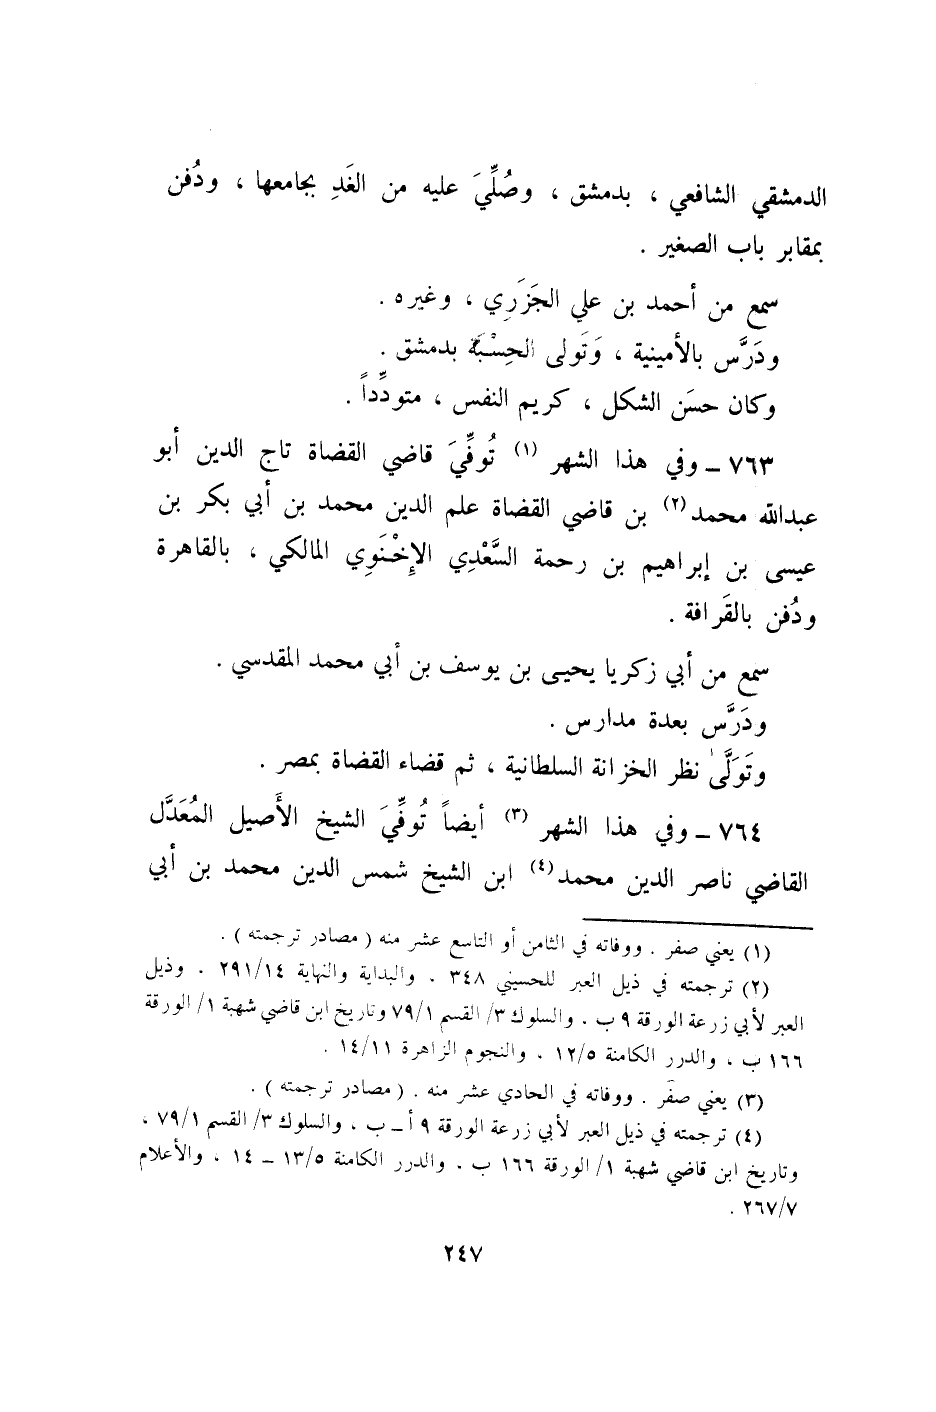 الدمشقي الشافعي ، بدمشق ، وصُلِّيَ عليه من الغَدِ بجامعها ، ودُفن
بمقابر باب الصغير .
سمع من أحمد بن علي الجَزَرِي ، وغيره .
ودَرَّس بالأمينية ، وَتَولى الحِسْبَة بدمشق .
وكان حسَن الشكل ، كريم النفس ، متودِّداً .
٧٦٣ ـ وفي هذا الشهر (١) تُوفِّيَ قاضي القضاة تاج الدين أبو
عبدالله محمد (٢) بن قاضي القضاة علم الدين محمد بن أبي بكر بن
عيسى بن إبراهيم بن رحمة السَّعْدِي الإِخْنَوِي المالكي ، بالقاهرة
ودُفن بالقَرافة .
سمع من أبي زكريا يحيى بن يوسف بن أبي محمد المقدسي .
ودَرَّس بعدة مدارس .
وتَوَلَّىٰ نظر الخزانة السلطانية ، ثم قضاء القضاة بمصر .
٧٦٤ ـ وفي هذا الشهر (٣) أيضاً تُوفِّيَ الشيخ الأَصيل المُعَدَّل
القاضي ناصر الدين محمد (٤) ابن الشيخ شمس الدين محمد بن أبي
(١) يعني صفر . ووفاته في الثامن أو التاسع عشر منه ( مصادر ترجمته ) .
(٢) ترجمته في ذيل العبر للحسيني ٣٤٨ . والبداية والنهاية ٢٩١/١٤ . وذيل
العبر لأبي زرعة الورقة ٩ ب . والسلوك ٣/ القسم ٧٩/١ وتاريخ ابن قاضي شهبة ١/ الورقة
١٦٦ ب ، والدرر الكامنة ١٢/٥ . والنجوم الزاهرة ١٤/١١ .
(٣) يعني صفر . ووفاته في الحادي عشر منه . ( مصادر ترجمته ) .
(٤) ترجمته في ذيل العبر لأبي زرعة الورقة ٩ أ ـ ب ، والسلوك ٣/ القسم ٧٩/١ ،
وتاريخ ابن قاضي شهبة ١/ الورقة ١٦٦ ب . والدرر الكامنة ١٣/٥ ـ ١٤ . والأعلام
٢٦٧/٧ .
٢٤٧